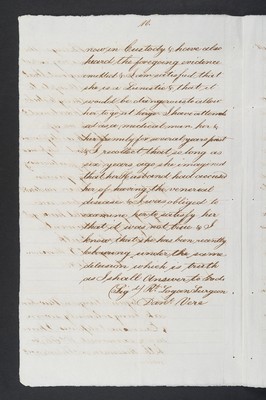 now in Custody & have also
heard the foregoing evidence
emitted & I am satisfied that
she is a Lunatic & that it
would be dangerous to allow
her to go at large I have attend
ed as a medical man her &
her family for several years past
& I recollect that so long as
six years ago she imagined
that her Husband had accused
her of having the venereal
disease & I was obliged to
examine her to satisfy her
that it was not true & I
know that she has been recently
labouring under the same
delusion which is truth
as I shall Answer to God.
(Sigd) Rt. Logan Surgeon